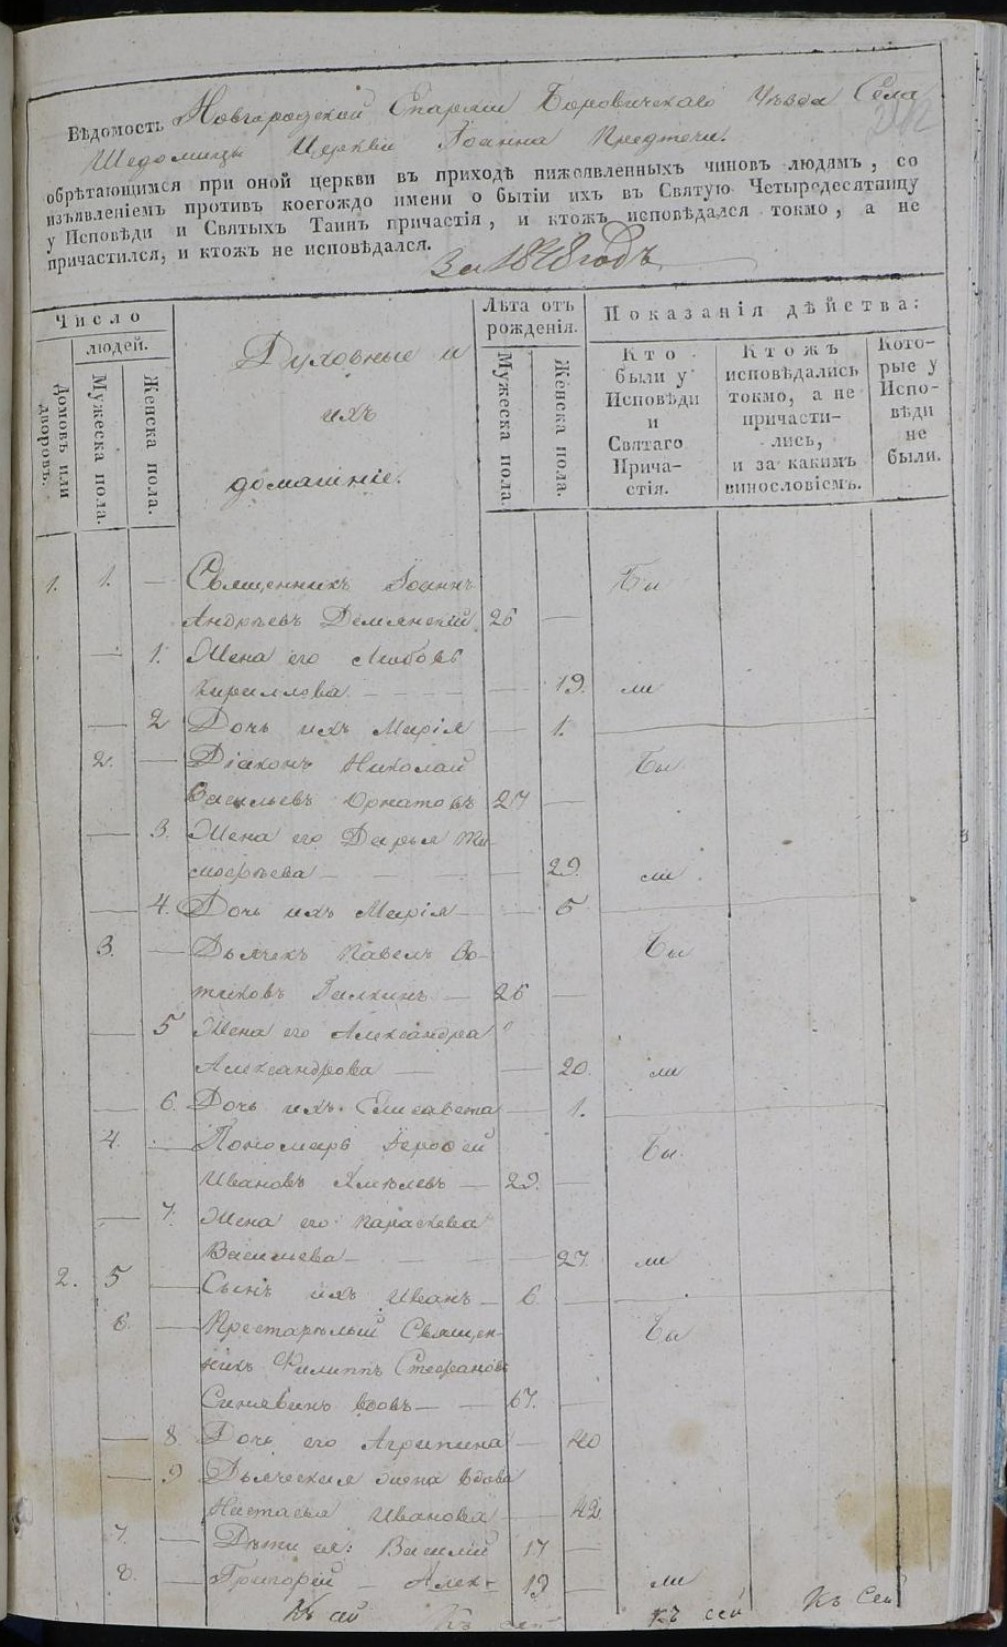 Вѣдомость Новгородской Епархіи Боровичскаго Уѣзда Села
Шедомицы Церкви Іоанна Предтечи.
обрѣтающимся при оной церкви въ приходѣ нижеявленныхъ чиновъ людямъ, со
изъявленіемъ противъ коегождо имени о бытіи ихъ въ Святую Четыредесятницу
у Исповѣди и Святыхъ Таинъ причастія, и ктожъ исповѣдался токмо, а не
причастился, и ктожъ не исповѣдался.
За 1848 годъ
Число
людей.
Домовъ или дворовъ.
Мужеска пола.
Женска пола.
Духовные и
ихъ
домашніе.
Лѣта отъ
рожденія.
Мужеска пола.
Женска пола.
Показанія дѣйства:
Кто
были у
Исповѣди
и
Святаго
Прича-
стія.
Ктожъ
исповѣдались
токмо, а не
причасти-
лись,
и за какимъ
винословіемъ.
Кото-
рые у
Испо-
вѣди
не
были.
1. 1. — Священникъ Іоаннъ Бы
Андреевъ Демянскій 26 —
— 1. Жена его Любовь
Кириллова — — 19. ли
— 2 Дочь ихъ Марія — 1.
2. — Діаконъ Николай Бы
Васильевъ Орнатовъ 27 —
— 3. Жена его Дарья Ти-
мофеева — — 29. ли
— 4. Дочь ихъ Марія — — 5
3. — Дьячекъ Павелъ Бы
26 —
— 5 Жена его Александра
Александрова — — 20. ли
— 6. Дочь ихъ Елисавета — 1.
4. — Пономарь Іерофей Бы
Ивановъ Хмѣлевъ — 29. —
— 7. Жена его Параскева
Васильева — — 27. ли
2. 5 — Сынъ ихъ Иванъ — 6 —
6. — Престарѣлый Священ- Бы
никъ Филиппъ Стефановъ
Синявинъ вдовъ — 67. —
— 8 Дочь его Агрипина — 40
— 9 Дьяческая жена вдова
Настасья Иванова — 42
7. — Дѣти ея: Василій 17 —
8. — Григорій — 13 — ли
Къ сей Къ сей Къ сей